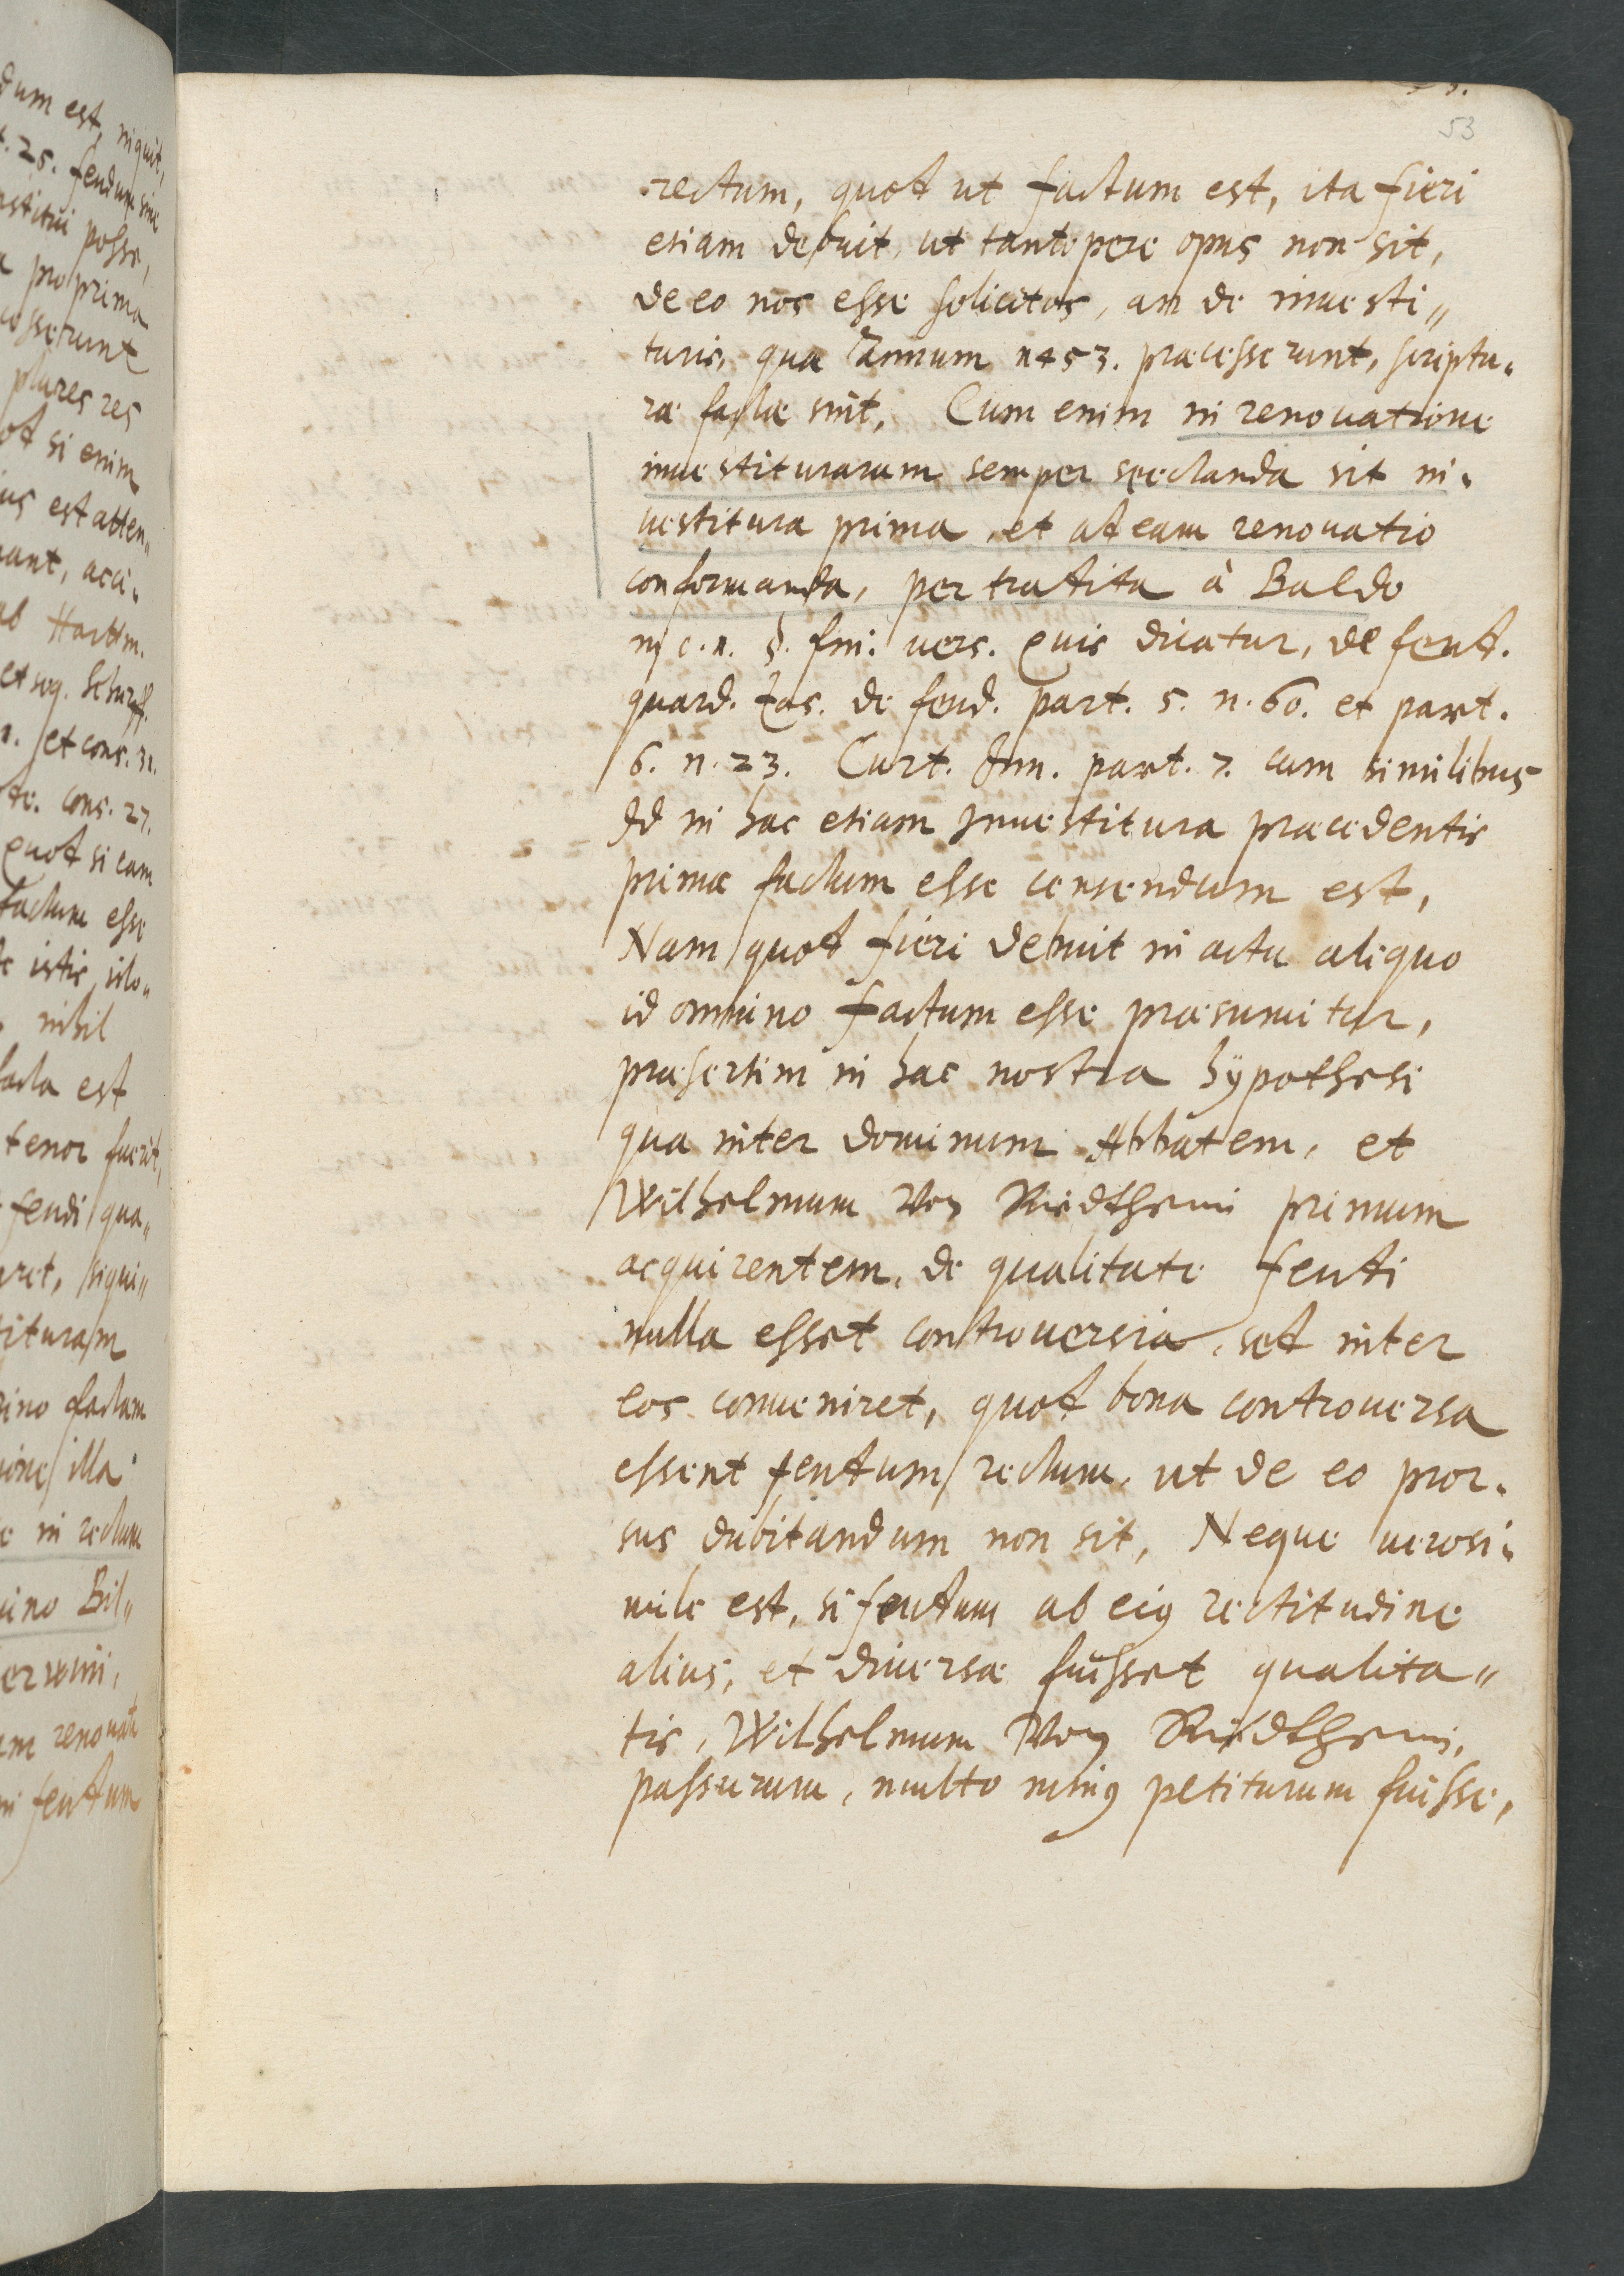 53
rectum, quod ut factum est, ita fieri
etiam debuit, ut tantopere opus non sit,
de eo nos esse solicitos, an de inuesti„
turis, quæ annum 1453. præcesserunt, scriptu„
ræ factæ sint, Cum enim in renouatione
inuestiturarum semper spectanda sit in„
uestitura prima, et ad eam renouatio
conformanda, per tradita à Baldo
in c. 1. §. fin: uers. quis dicatur, de feud.
guard. Zas. de feud. part. 5. n. 60. et part.
6. n. 23. Curt. Jun. part. 7. cum similibus
Id in hac etiam Inuestitura præcedentis
primæ factum esse censendum est,
Nam quod fieri debuit in actu aliquo
id omnino factum esse præsumitur,
præsertim in hac nostra hÿpothesi
qua inter dominum Abbatem, et
Wilhelmum Von Riedtheim primum
acquirentem, de qualitate feudi
nulla esset controuersia, sed inter
eos conueniret, quod bona controuersa
essent feudum rectum, ut de eo pror„
sus dubitandum non sit, Neque uerosi„
mile est, si feudum ab eius rectitudine
alius, et diuersæ fuisset qualita„
tis, Wilhelmum Von Riedtheim,
passurum, multo minus petiturum fuisse,
dum est, inquit,
. 25. feudum sine
stitui posse,
pro prima
cesserunt
plures res
od si enim
us est atten„
ant, acci„
ab Hartm.
et seq. Schurpff.
1. et cons. 31.
cons. 27.
quod si eam
factum esse
istis, ido„
nihil
facta est
tenor fuerit,
feudi qua„
ret, siqui„
tituram
ino factam
ione illa
in rectum
ino Bil„
am renouati
in feudum